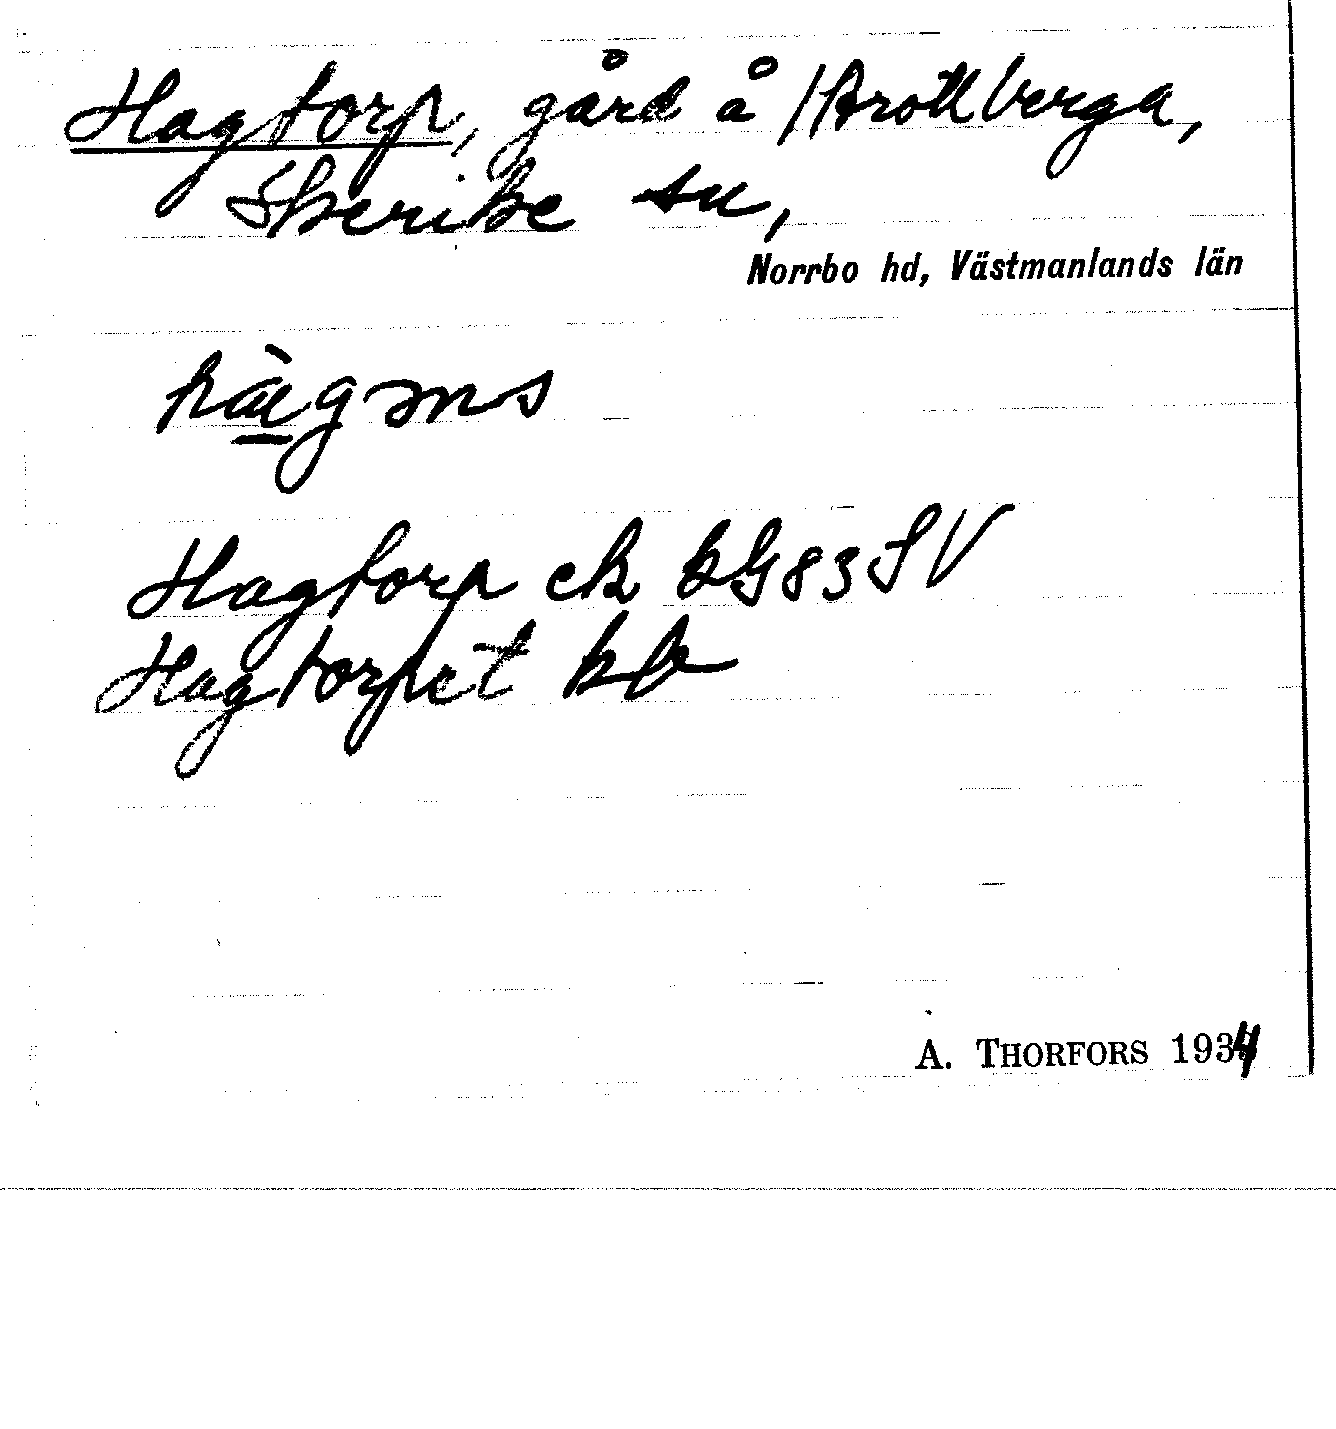 Hagtorp, gård å Brottberga,
Skerike sn,
Norrbo hd, Västmanlands län
hægəns
Hagtorp ek bG83SV
Hagtorpet bb
A. THORFORS 1934